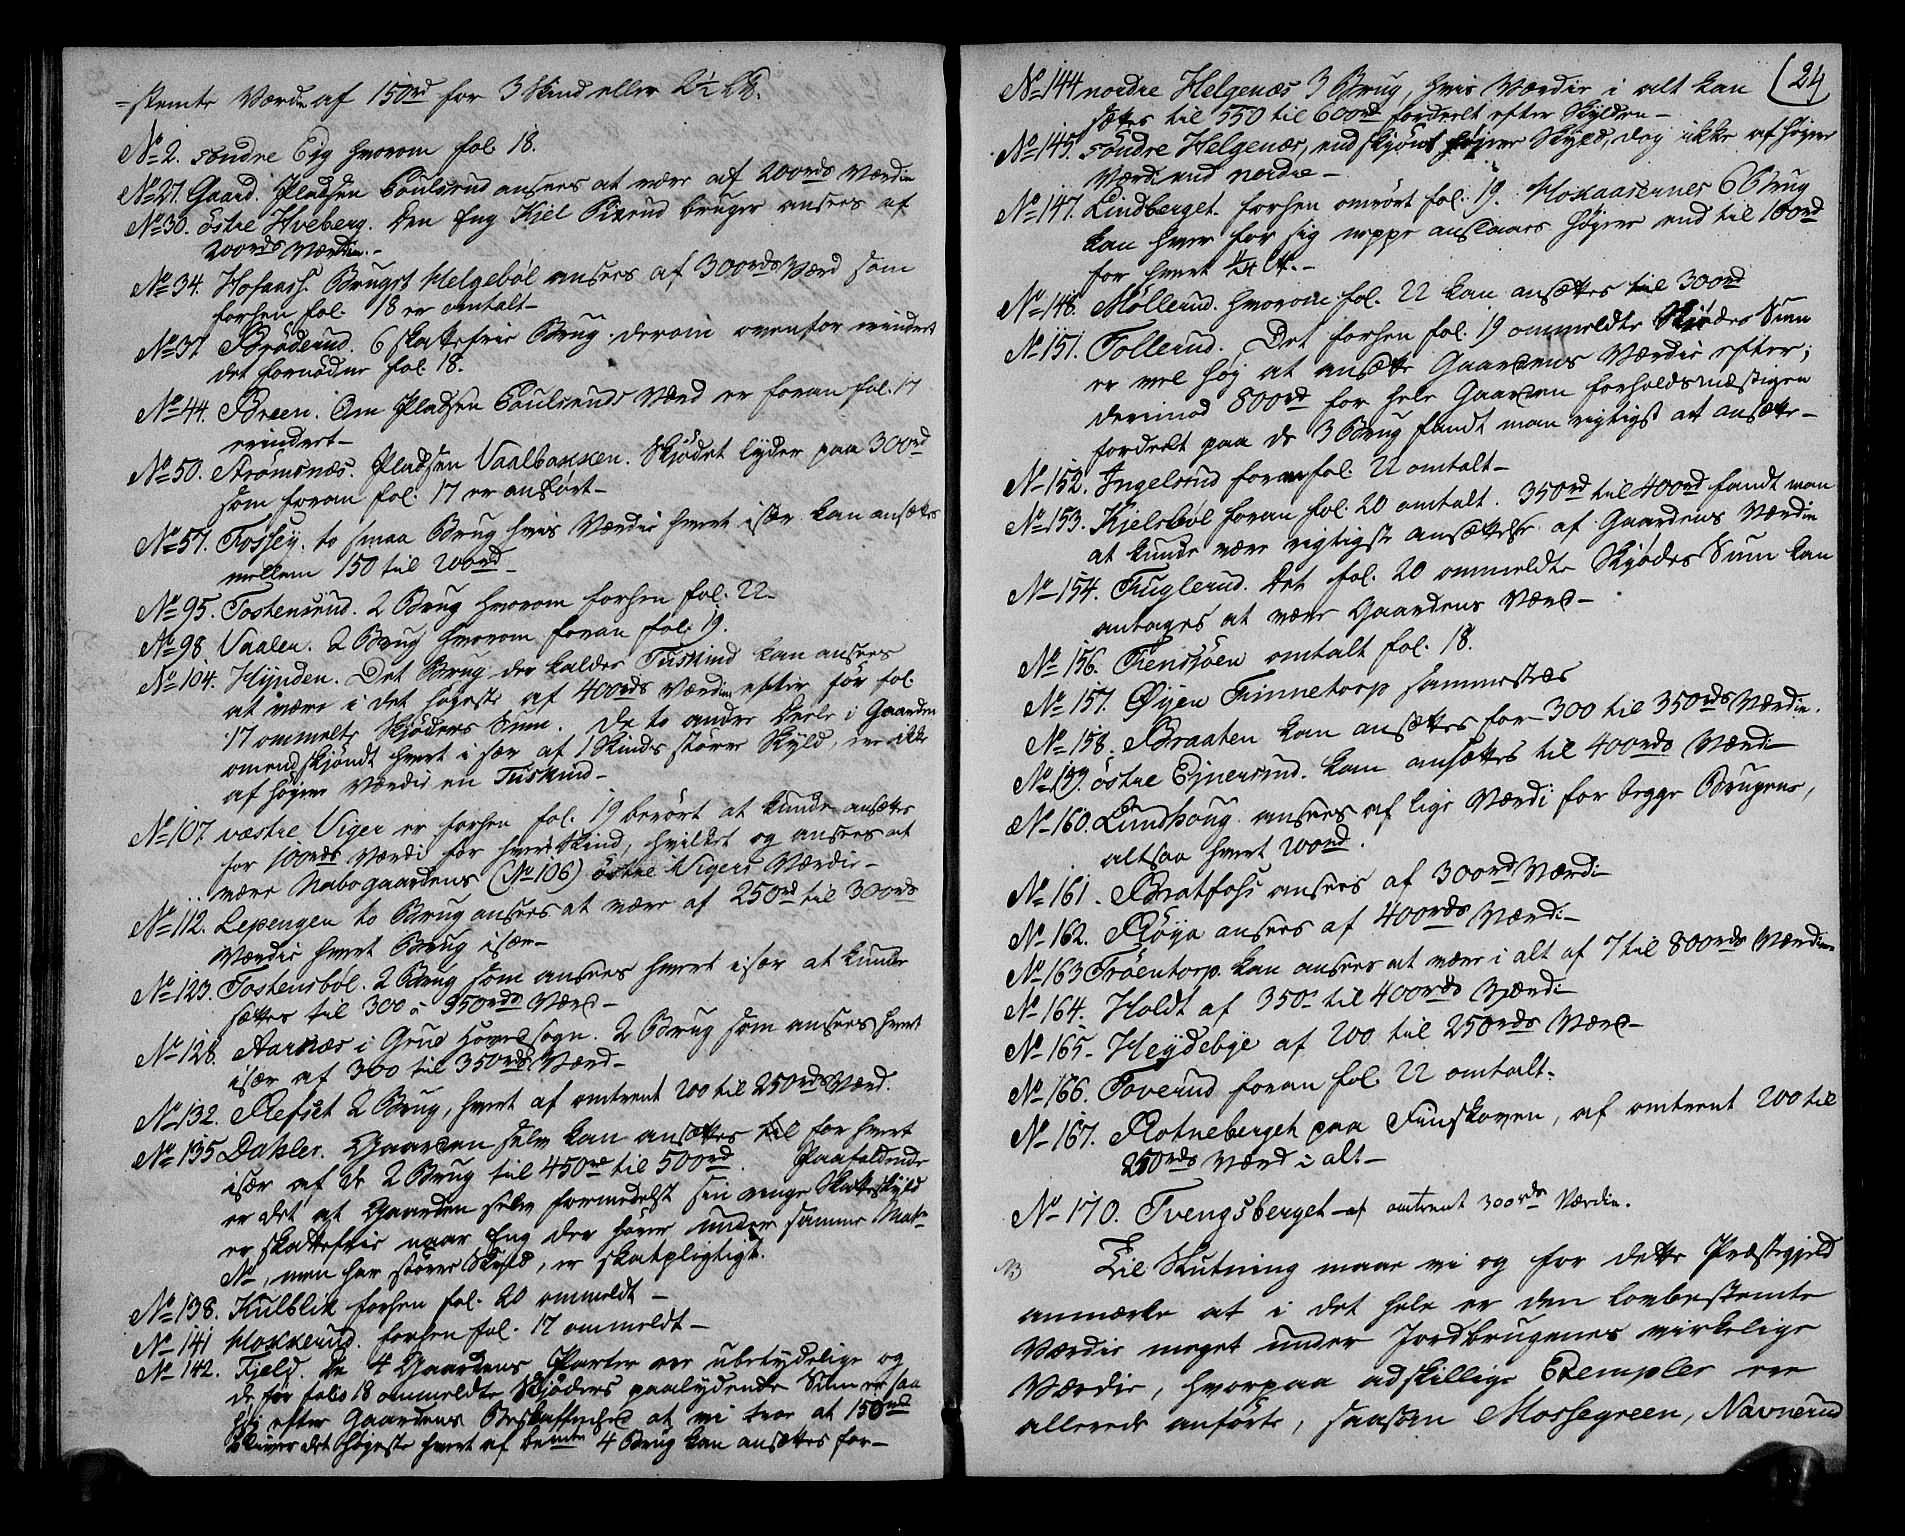 =stemte Værdie af 150rd for 3 Skind eller 2½ L℔.
No 2. søndre Eg hvorom fol. 18.
No 27. Gaard. Pladsen Poulsrud ansees at være af 200rds Værdie
No 30. østre Hveberg. Den Eng Kjel bruger ansees af
200rds Værdie.-
No 34. Hofaasf. Brugst Helgebøl ansees af 300rds Værd som
forhen fol. 18 er omtalt-
No 37. Brøderud. 6 skattefrie Brug. derom ovenfor erindret
det fornødne fol. 18.
No 44. Breen. Om Pladsen Poulsruds Værd er foran fol. 17
erindret-
No 50. Strømsnæs. Pladsen Vaalbakken. Skjødet lyder paa 300rd
som foran fol. 17 er anført-
No 57. Fossey. to smaa Brug hvis Værdie hvert især kan ansættes
mellem 150 til 200rd-
No 95. Tostensrud. 2 Brug hvorom forhen fol. 22-
No 98 Vaalen. 2 Brug hvorom foran fol. 19.
No 104. Hynden. Det Brug der kaldes Tuskind kan ansees
at være i det høyeste af 400rds Værdie efter før fol.
17 ommelte Skjøders Sum. De to andre Deele i Gaarden
omendskjøndt hvert i sær af 1 Skinds større Skyld, ere ikke
af høyere Værdie en Tuskind-
No 107 væstre Viger er forhen fol. 19 berørt at kunde ansættes
for 100rds Værdi for hvert Skind, hvilket og ansees at
være Nabogaardens (No 106) østre Vigers Værdie-
No 112. Lepengen to Brug ansees at være af 250rd til 300rds
Værdie hvert Brug især-
No 123. Tostensbøl. 2 Brug som ansees hvert især at kunde
sættes til 300 a 350rds Værd-
No 128. Aarnæs i Grue hovedsogn. 2 Brug som ansees hvert
især af 300 til 350rds Værd-
No 132. Refset 2 Brug, hvert af omtrent 200 til 250rds Værd.
No 135 Dahler. Gaarden selv kan ansættes til for hvert
især af de 2 Brug til 450rd til 500rd. Paafaldende
er det at Gaarden selv formedelst sin ringe Skatteskyld
er skattefrie naar Eng der hører under samme Matr
No, men har større Skyld, er skatpligtigt.
No 138. Kulblik forhen fol. 20 ommeldt-
No 141 Mokkerud. forhen fol. 17 ommeldt-
No 142. Fjeld. De 4 Gaardens Parter ere ubetydelige og
de før folio 18 ommeldte Skjøders paalydende Sum er saa
høy efter Gaardens Beskaffenhed at vi troe at 150rd
bliver det høyeste hvert af bemte 4 Brug kan ansættes for-
24
No 144 nordre Helgenæs 3 Brug, hvis Værdie i alt kan
sættes til 550 til 600rd fordeelt efter Skylden-
No 145. søndre Helgenæs, endskjønt høyere Skyld, dog ikke af høyere
Værdi end nordre-
No 147. Lindberget. forhen omrørt fol. 19. Mokaasernes 6 Brug
kan hver for sig neppe anslaaes høyere end til 100rd
for hvert
No 148. Møllerud. hvorom fol. 22 kan ansættes til 300rd
No 151. Tollerud. Det forhen fol. 19 ommeldte Skjødes Sum
er vel høy at ansætte Gaardens Værdie efter;
derimod 800rd for hele Gaarden forholdsmæssigen
fordeelt paa de 3 Brug fandt man rigtigst at ansætte-
No 152. Ingelsrud foran fol. 22 omtalt-
No 153. Kjelsbøl foran fol. 20 omtalt. 350rd til 400rd fandt man
at kunde være rigtigste ansættelse af Gaardens Værdie
No 154. Fuglerud. Det fol. 20 ommeldte Skjødes Sum kan
antages at være Gaardens Værd-
No 156. Tenssøen omtalt fol. 18.
No 157. Øyen Finnetorp sammesteds
No 158. Braaten kan ansættes for 300 til 350rds Værdie.
No 159. østre Ejnersrud. kan ansættes til 400rds Værdi-
No 160. Lundhoug ansees af lige Værdi for begge Brugene,
altsaa hvert 200rd.
No 161. Bratfoss ansees af 300rd Værdi-
No 162. Røya ansees af 400rds Værdi-
No 163 Trøentorp. kan ansees at være i alt af 7 til 800rds Værdie
No 164. Holdt af 350 til 400rds Værdi-
No 165- Heydebye af 200 til 250rds Værd-
No 166. Toverud foran fol. 22 omtalt.
No 167. Rotneberget paa Finskoven, af omtrent 200 til
250rds Værd i alt-
No 170. Tvengsberget af omtrent 300rds Værdie.
Til Slutning maae vi og for dette Præstegjeld
anmærke at i det hele er den lovbestemte
Værdie meget under Jordbrugenes virkelige
Værdie, hvorpaa adskillige Exempler ere
allerede anførte, saasom Mossegreen, Navnerud